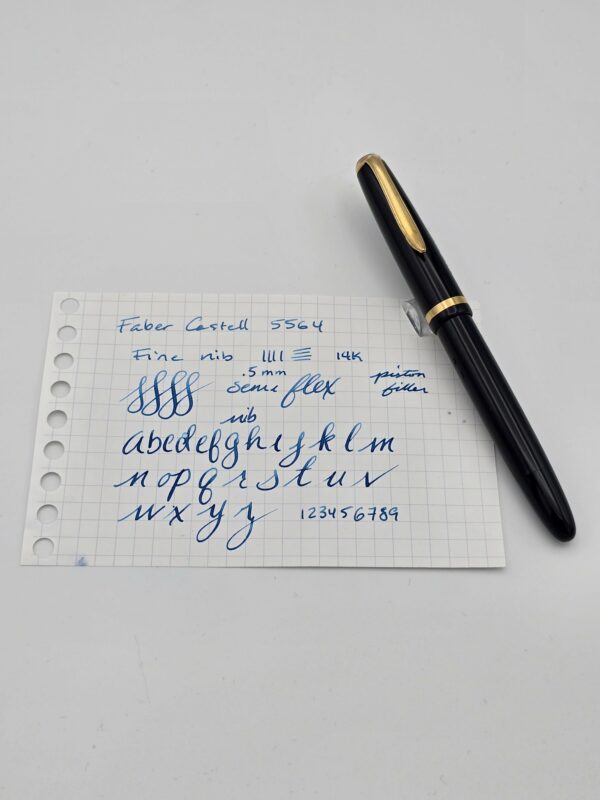 Faber Castell 5564
Fine nib 14K
.5 mm
semi flex piston filler
nib
abcdefghijklm
nopqrstuv
wxyz 123456789